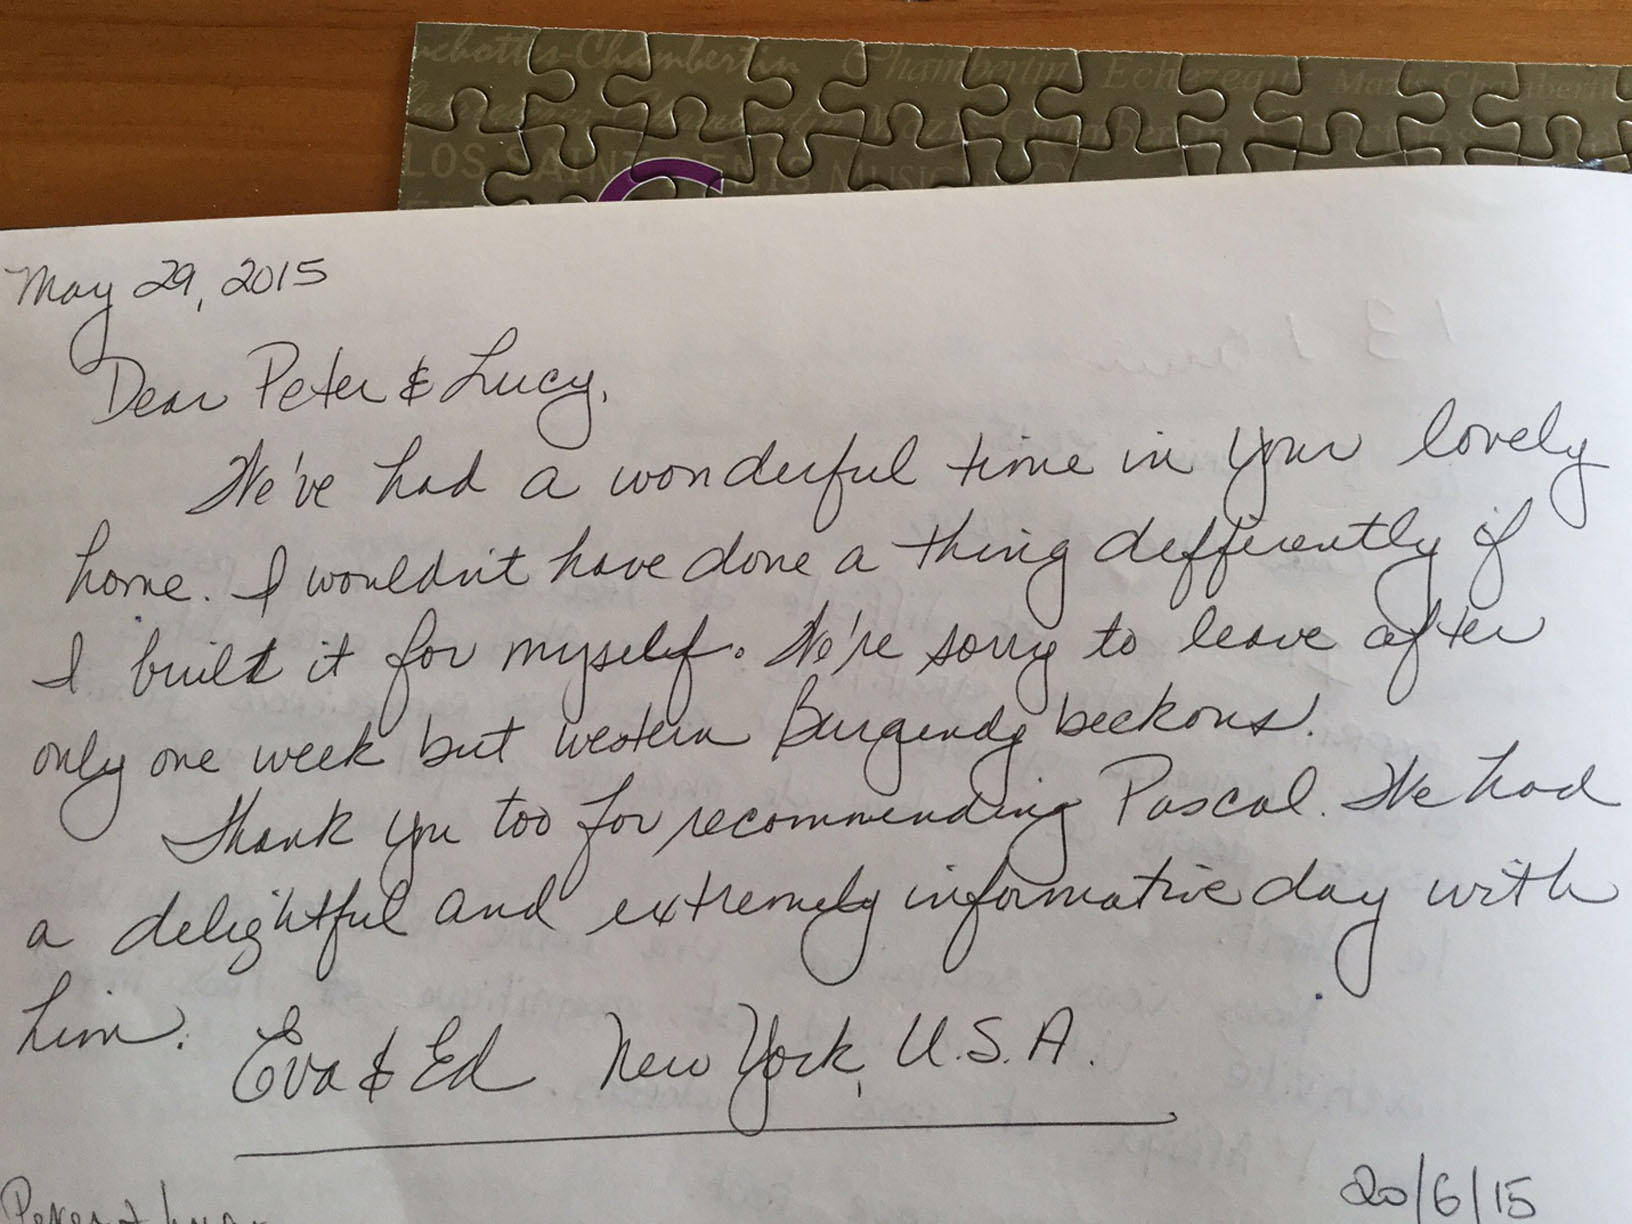 Chambertin Chambertin Echezeau Mazis-Chambertin
Mazis-Chambertin
LOS SAINT DENIS MUSIG
May 29, 2015
Dear Peter & Lucy,
We've had a wonderful time in your lovely
home. I wouldn't have done a thing defferently if
I built it for myself. We're sorry to leave after
only one week but western Burgundy beckons.
Thank you too for recommending Pascal. We had
a delightful and extremely informative day with
him.
Eva & Ed New York, U.S.A.
20/6/15